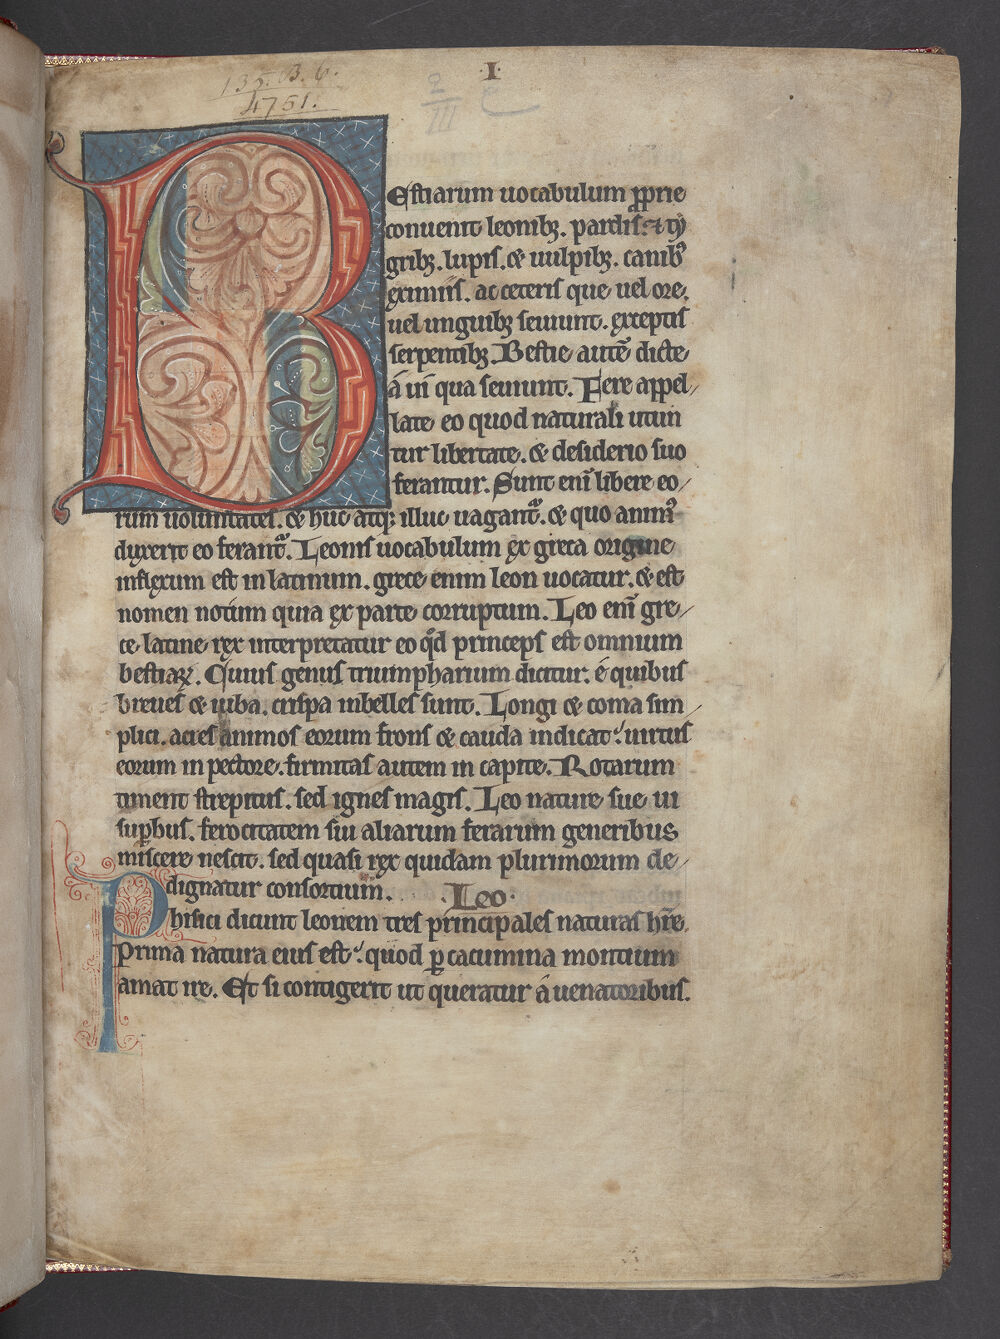 ·I·
135. B. 6.
4751.
2
III
e
BEstiarum uocabulum ꝓprie
conuenit leonibꝫ. pardis: ⁊ ty
gribꝫ. lupis. & uulpibꝫ. canibꝰ
& simiis. ac ceteris que uel ore.
uel unguibꝫ seuiunt. exceptis
serpentibꝫ. Bestie autē dicte
á ui qua seuiunt. Fere appel/
late eo quod naturali utun
tur libertate. & desiderio suo
ferantur. Sunt eni̅ libere eo/
rum uoluntates. & huc atqꝫ illuc uagant᷑. & quo animꝰ
duxerit eo ferant᷑. Leonis uocabulum ex greca origine
inflexum est in latinum. grece enim leon uocatur. & est
nomen notum quia ex parte corruptum. Leo eni̅ gre/
ce. latine rex interpretatur eo qd̅ princeps est omnium
bestiaꝝ. Cuius genus triumpharium dicitur. é quibus
breues & iuba. crispa inbelles sunt. Longi & coma sim/
plici. acies animos eorum frons & cauda indicat. uirtus
eorum in pectore. firmitas autem in capite. Rotarum
timent strepitus. sed ignes magis. Leo nature sue ui
suꝑbus. ferocitatem sui aliarum ferarum generibus
miscere nescit. sed quasi rex quidam plurimorum de/
dignatur consortium. .Leo.
Phisici dicunt leonem tres principales naturas hr̅e.
Prima natura eius est. quod ꝑ cacumina montium
amat ire. Et si contigerit ut queratur á uenatoribus.